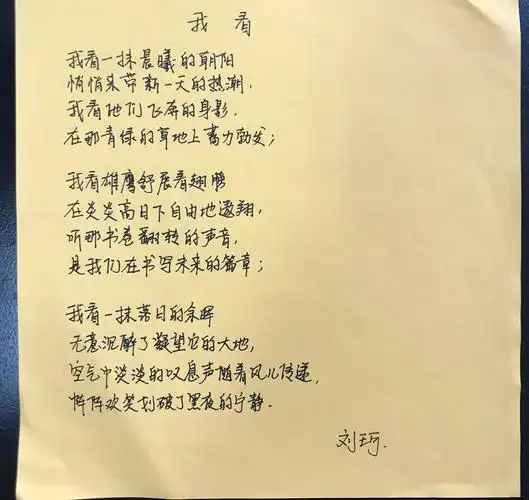 我看
我看一抹晨曦的朝阳
悄悄来带新一天的热潮,
我看他们飞奔的身影,
在那青绿的草地上蓄力勃发;
我看雄鹰舒展着翅膀
在炎炎高日下自由地遨翔,
听那书卷翻转的声音,
是我们在书写未来的篇章;
我看一抹落日的余晖
无意沉醉了凝望它的大地,
空气中淡淡的叹息声随着风儿传递,
阵阵欢笑划破了黑夜的宁静.
刘珂.